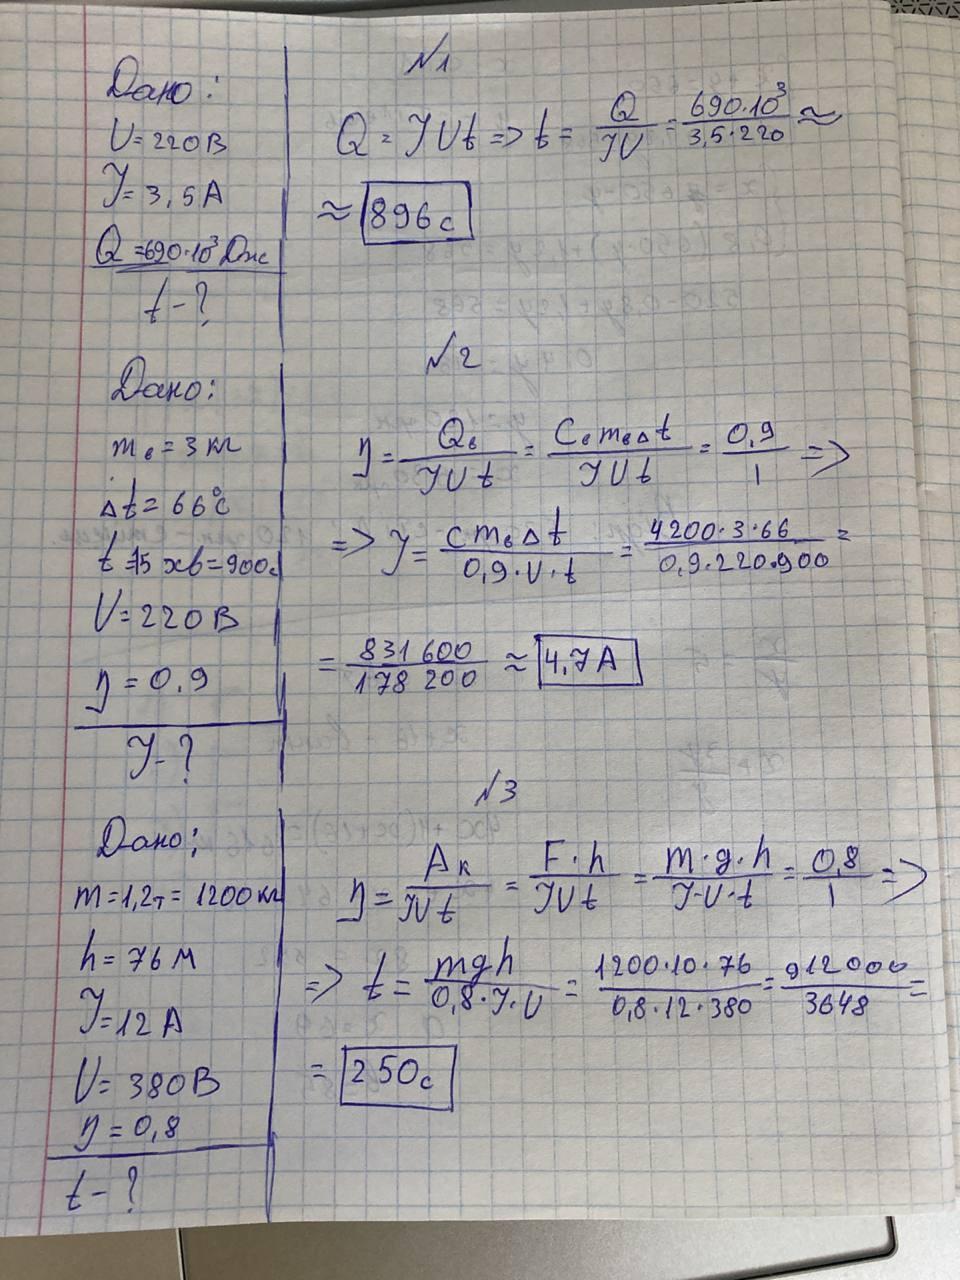 №1
Дано:
U=220В
I=3,5А
Q=690·10³Дж
t-?
Q=IUt=>t=Q/IU=690·10³/3,5·220≈
≈896с
№2
Дано:
mв=3кг
Δt=66°с
t=15хв=900с
U=220В
η=0.9
I-?
η=Qв/IUt=CвmвΔt/IUt=0,9/1=>
=>I=cmвΔt/0,9·U·t=4200·3·66/0,9·220·900=
=831600/178200≈4,7А
№3
Дано:
m=1,2т=1200кг
h=76м
I=12А
U=380В
η=0,8
t-?
η=Aк/IUt=F·h/IUt=m·g·h/I·U·t=0,8/1=>
=>t=mgh/0,8·I·U=1200·10·76/0,8·12·380=912000/3648=
=250с